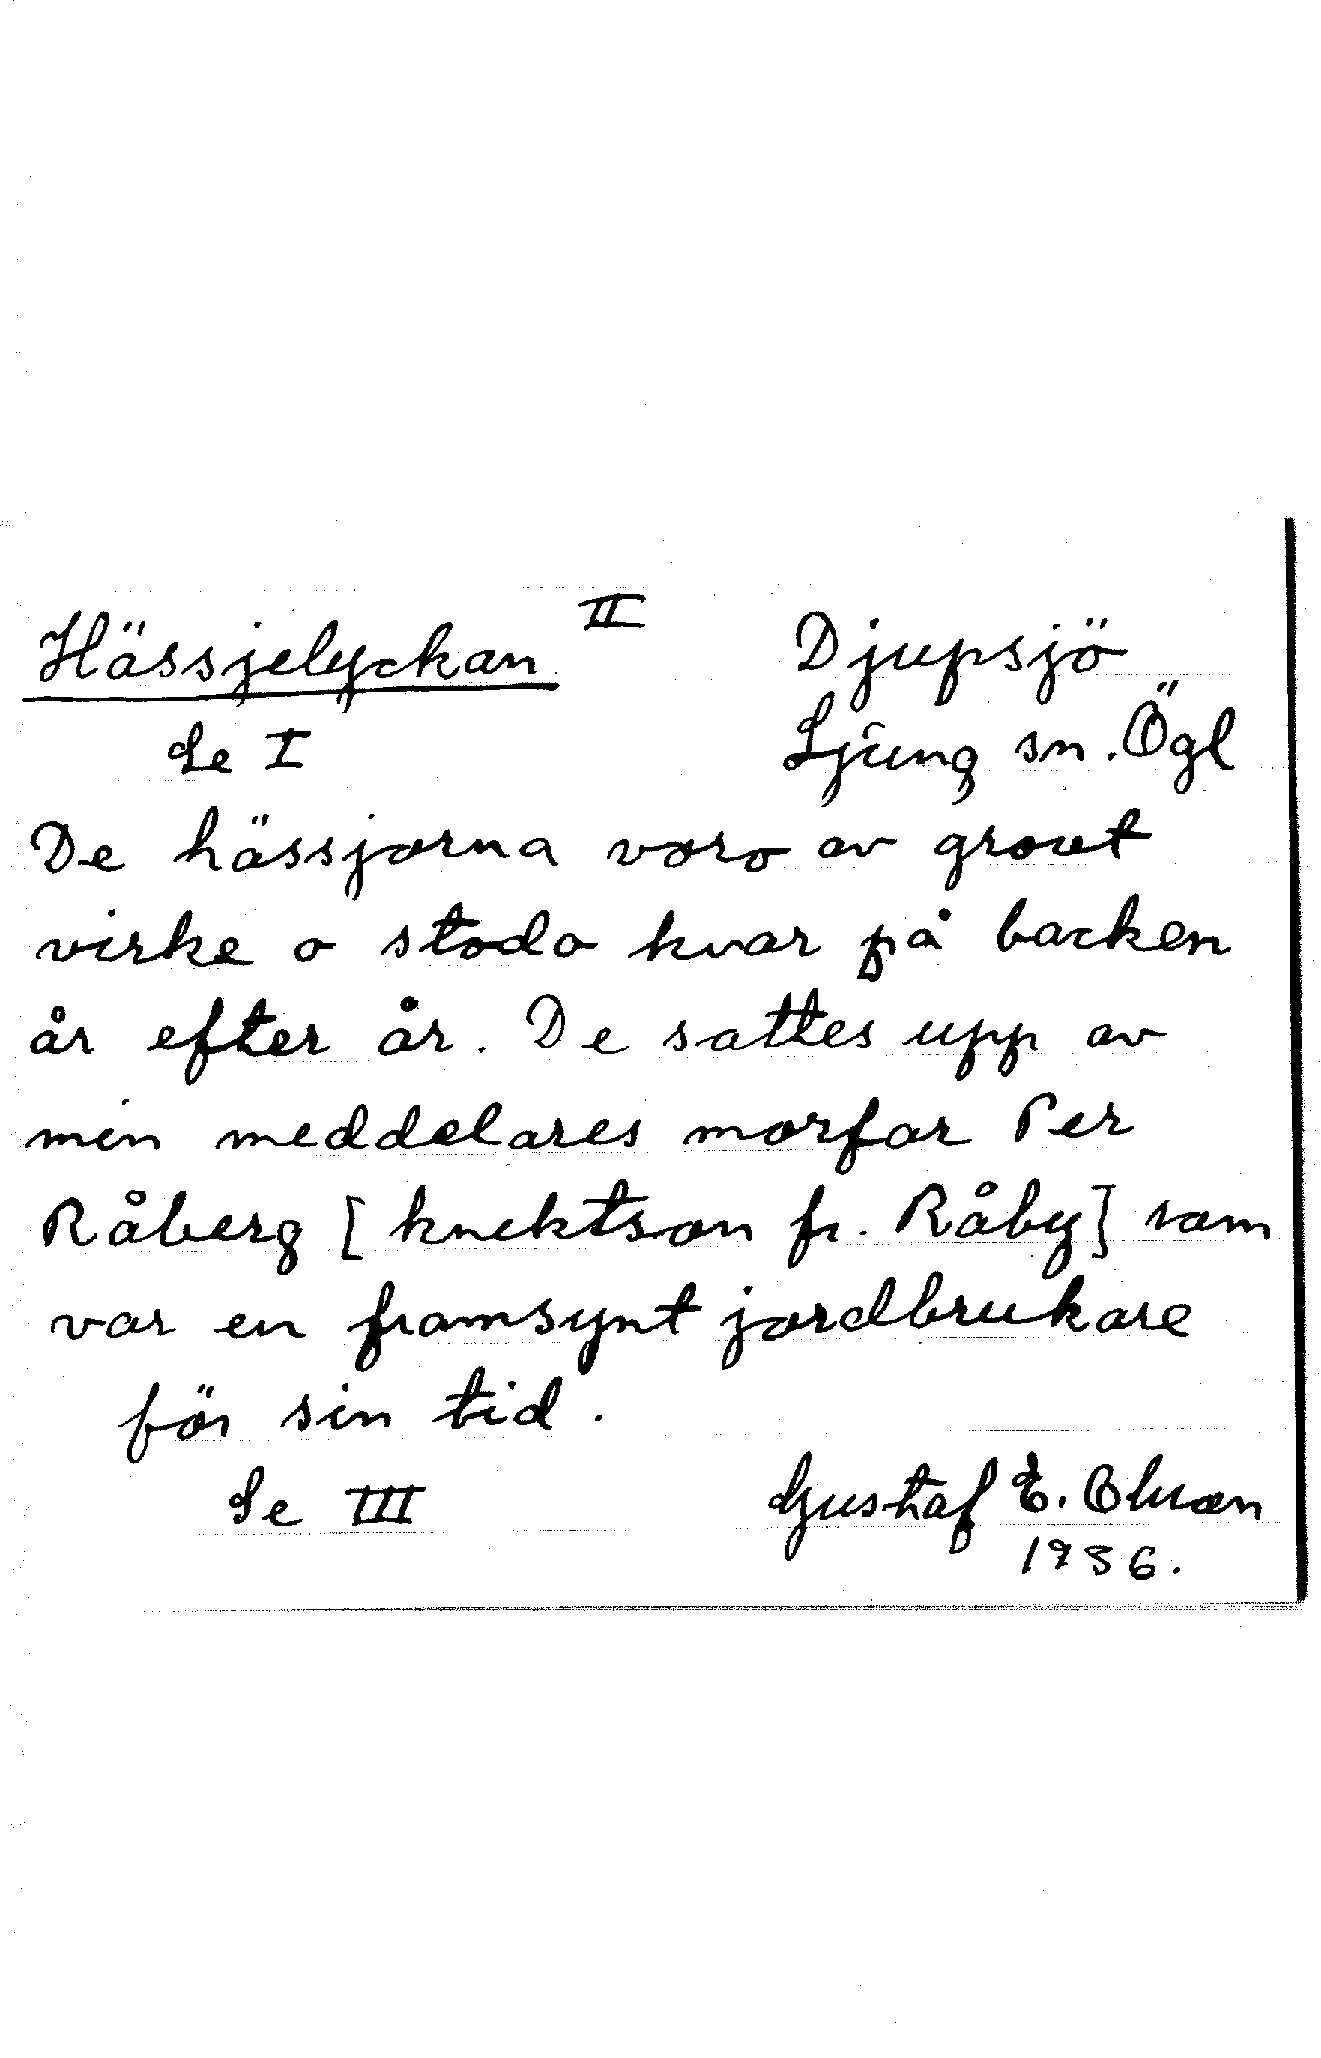 Hässjelyckan II Djupsjö
Se I Ljung sn. Ögl
De hässjorna voro av grovt
virke o stodo kvar på backen
år efter år. De sattes upp av
min meddelares morfar Per
Råberg [knektson fr. Råby] som
var en framsynt jordbrukare
för sin tid.
Se III Gustaf E.
1936.